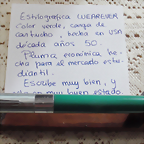 Estilográfica WEAREVER
color verde, carga de
cartucho, hecha en USA
década años 50.
Pluma económica he-
cha para el mercado estu-
diantil.
Escribe muy bien, y
muy buen estado